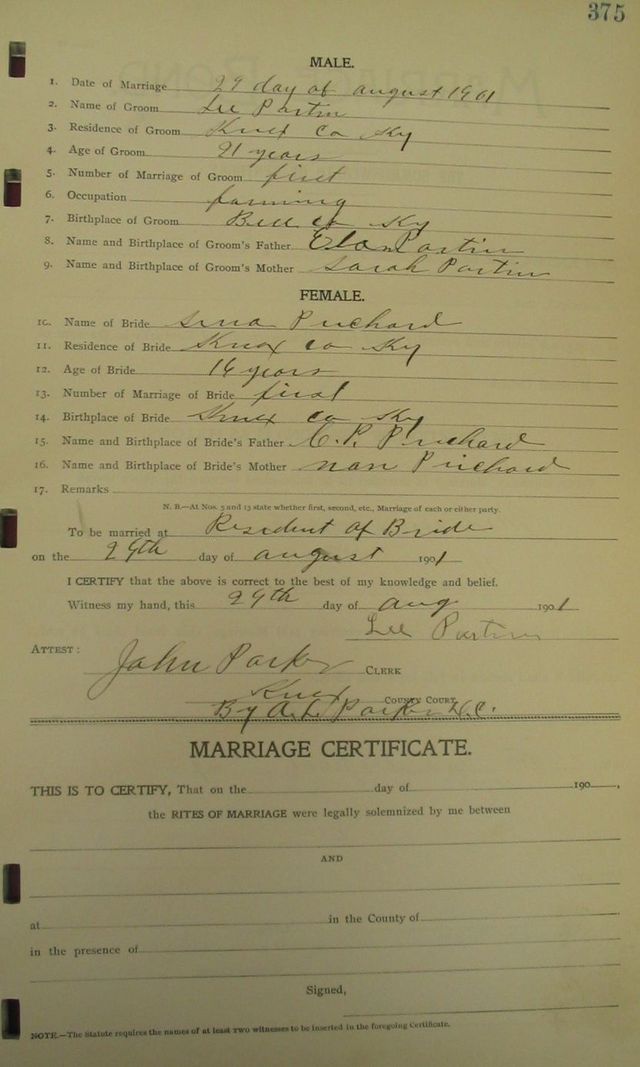 375
MALE.
1. Date of Marriage 29 day of august 1901
2. Name of Groom Lee Partin
3. Residence of Groom Knox Co Ky
4. Age of Groom 21 years
5. Number of Marriage of Groom first
6. Occupation farming
7. Birthplace of Groom Bell Co Ky
8. Name and Birthplace of Groom's Father Partin
9. Name and Birthplace of Groom's Mother Sarah Partin
FEMALE.
10. Name of Bride Prichard
11. Residence of Bride Knox Co Ky
12. Age of Bride 16 years
13. Number of Marriage of Bride first
14. Birthplace of Bride Knox Co Ky
15. Name and Birthplace of Bride's Father Prichard
16. Name and Birthplace of Bride's Mother nan Prichard
17. Remarks
N. B.—At Nos. 5 and 13 state whether first, second, etc., Marriage of each or either party.
To be married at Resident of Bride
on the 29th day of august 1901
I CERTIFY that the above is correct to the best of my knowledge and belief.
Witness my hand, this 29th day of aug 1901
Lee Partin
ATTEST: John Parker CLERK
Knox COUNTY COURT.
By A. L. Parker D.C.
MARRIAGE CERTIFICATE.
THIS IS TO CERTIFY, That on the day of 190 ,
the RITES OF MARRIAGE were legally solemnized by me between
AND
at in the County of
in the presence of
Signed,
NOTE.—The Statute requires the names of at least two witnesses to be inserted in the foregoing Certificate.